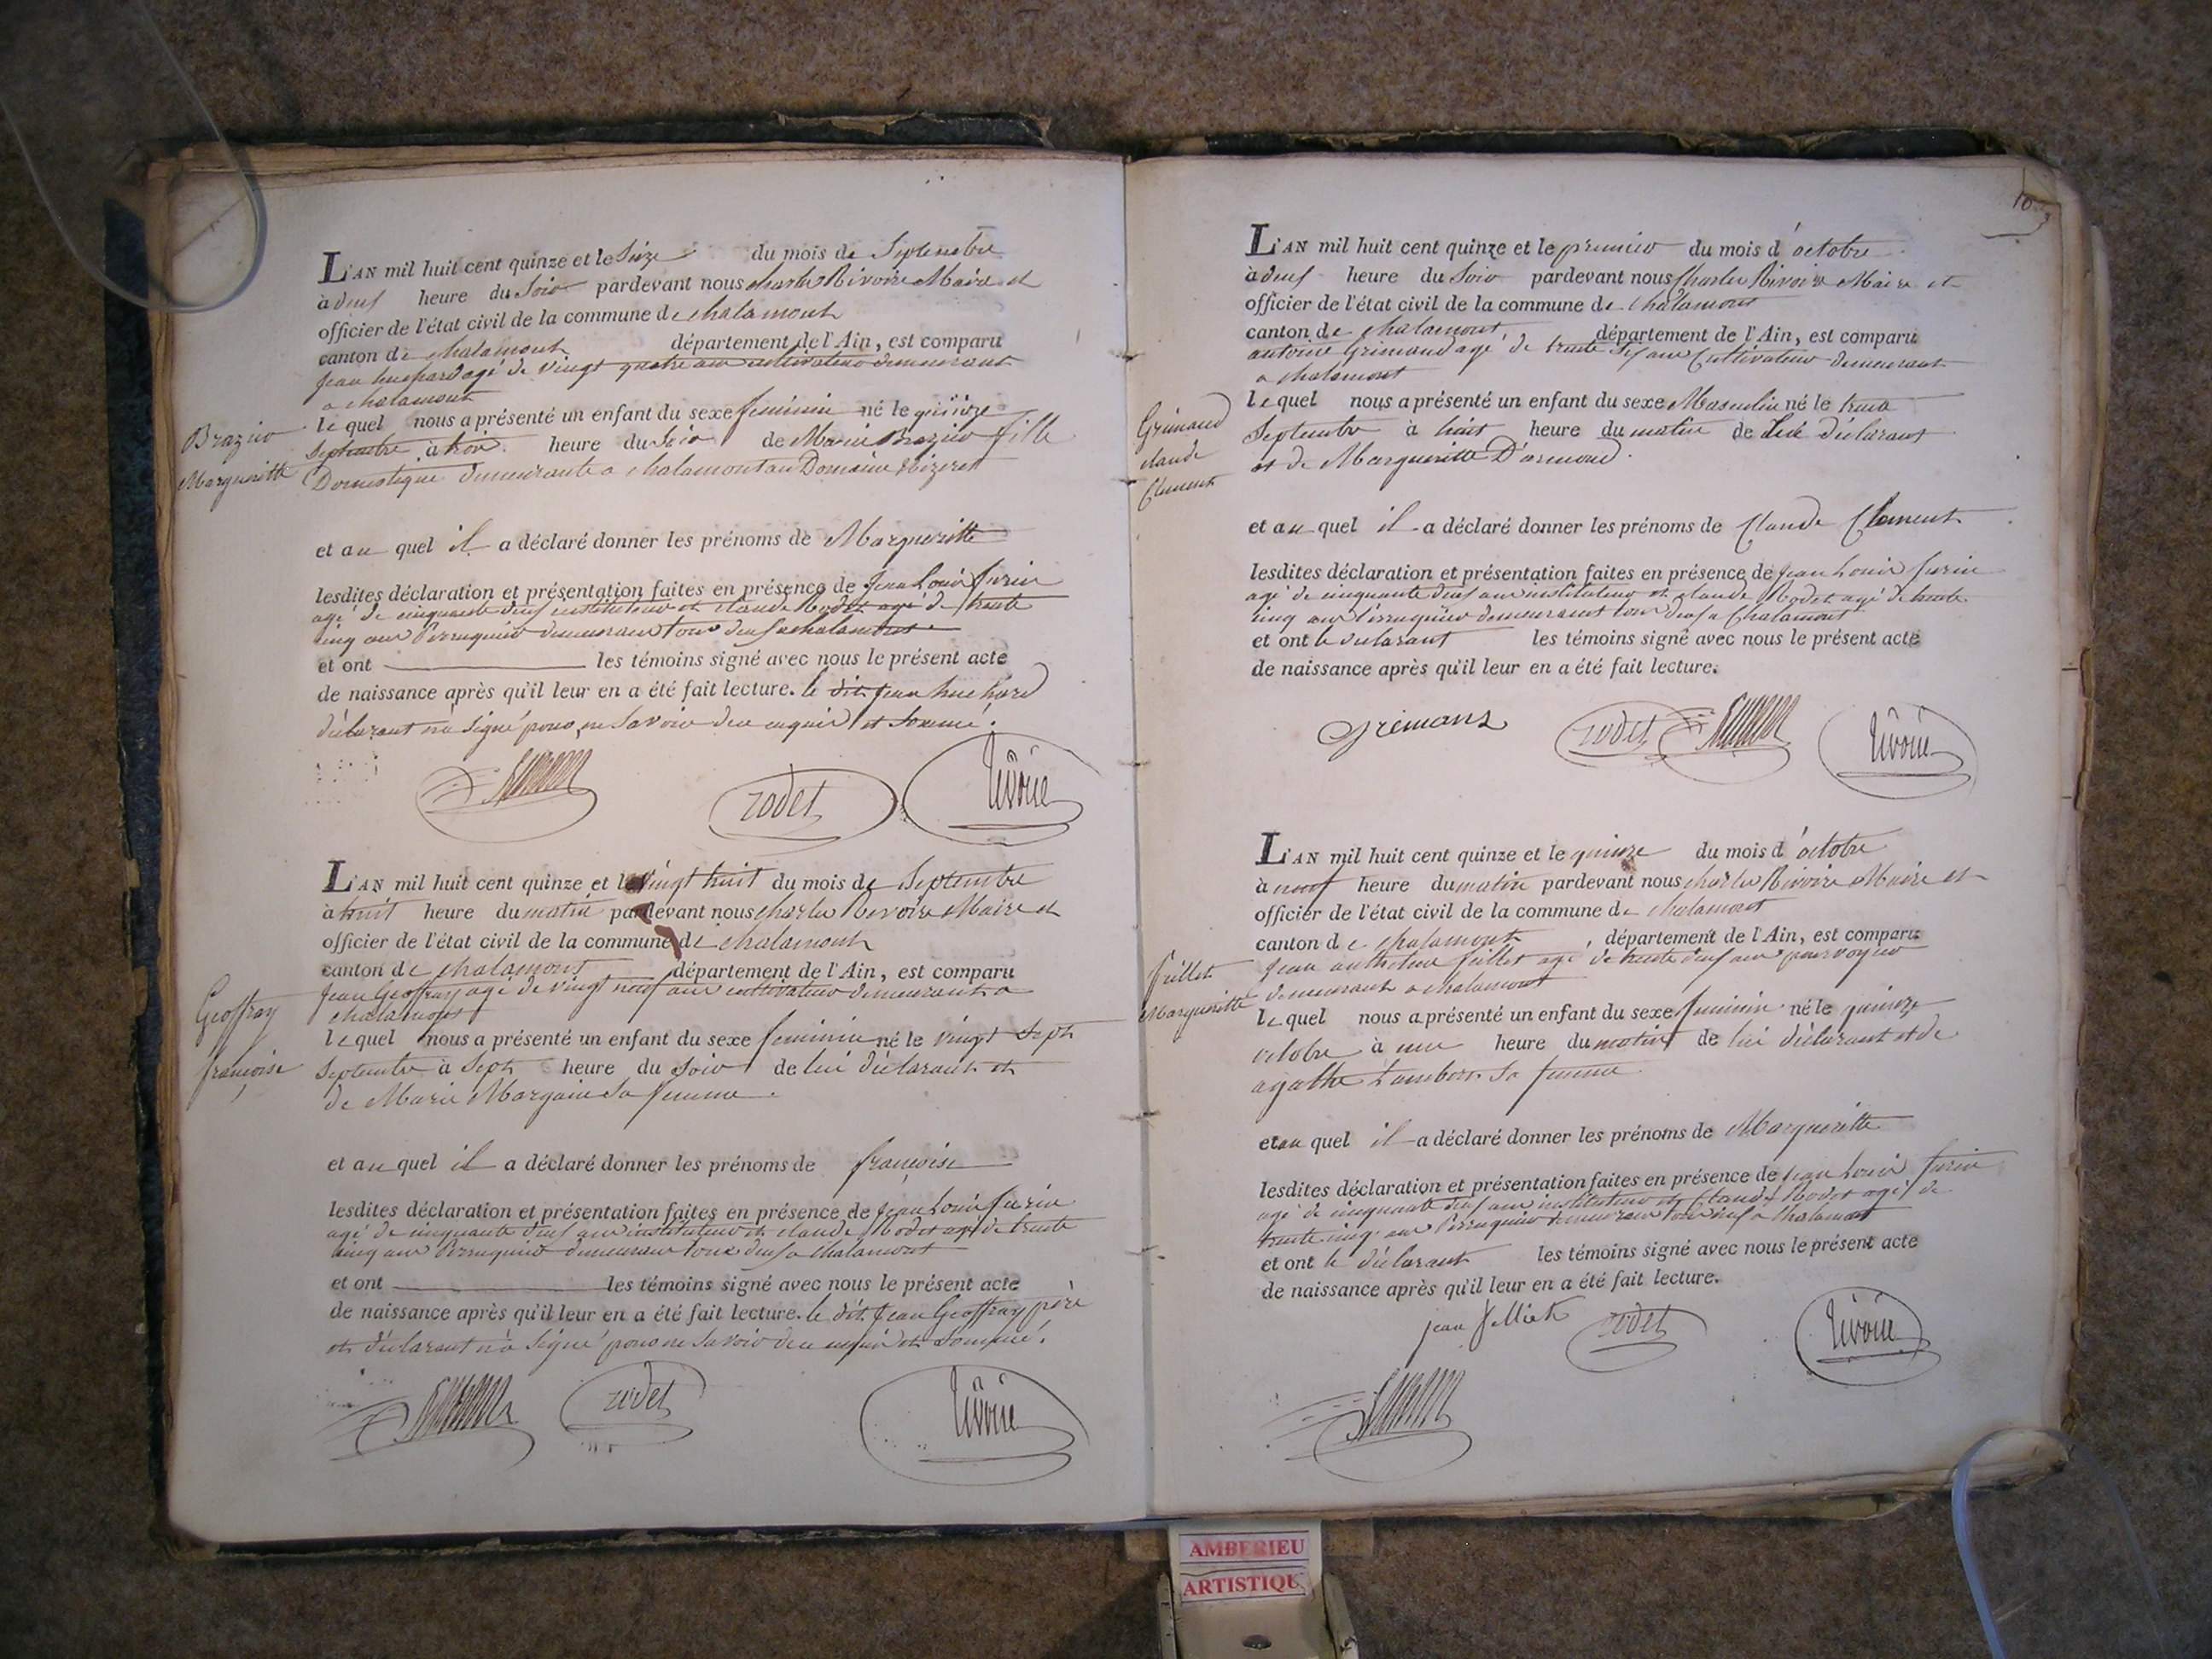 L'AN mil huit cent quinze et le Seize du mois de Septembre
à deux heure du Soir pardevant nous Charles Rivoire Maire et
officier de l'état civil de la commune de chalamont
canton de chalamont département de l'Ain, est comparu
Jean huchard agé de vingt quatre ans cultivateur demeurant
a chalamont
Brazier
le quel nous a présenté un enfant du sexe feminin né le quinze
Septembre à trois heure du Soir de Marie Brazier fille
Margueritte
Domestique demeurante a chalamont au Domaine
et au quel il a déclaré donner les prénoms de Margueritte
lesdites déclaration et présentation faites en présence de Jean Louis
agé de cinquante deux instituteur et claude Rodet agé de trente
cinq ans Perruquier demeurant tous deux a chalamont
et ont les témoins signé avec nous le présent acte
de naissance après qu'il leur en a été fait lecture. le dit Jean huchard
déclarant n'a signé pour ne savoir de ce enquis et sommé.
rodet rivoire
L'AN mil huit cent quinze et le vingt huit du mois de Septembre
à huit heure du matin pardevant nous charles Rivoire Maire et
officier de l'état civil de la commune de chalamont
canton de chalamont département de l'Ain, est comparu
Jean Geoffray agé de vingt neuf ans cultivateur demeurant a
chalamont
Geoffray
le quel nous a présenté un enfant du sexe feminin né le vingt sept
françoise
Septembre à Sept heure du Soir de lui déclarant et
de Marie Margain sa femme.
et au quel il a déclaré donner les prénoms de françoise
lesdites déclaration et présentation faites en présence de Jean Louis
agé de cinquante deux ans instituteur et claude Rodet agé de trente
cinq ans Perruquier demeurant tous deux a chalamont
et ont les témoins signé avec nous le présent acte
de naissance après qu'il leur en a été fait lecture. le dit Jean Geoffray père
et déclarant n'a signé pour ne savoir de ce enquis et sommé.
rodet rivoire
10
L'AN mil huit cent quinze et le premier du mois d'octobre
à deux heure du Soir pardevant nous Charles Rivoire Maire et
officier de l'état civil de la commune de chalamont
canton de chalamont, département de l'Ain, est comparu
antoine Grimaud agé de trente ans Cultivateur demeurant
a chalamont
Grimaud
claude
Clement
le quel nous a présenté un enfant du sexe Masculin né le trente
Septembre à huit heure du matin de lui déclarant
et de Margueritte Darmond.
et au quel il a déclaré donner les prénoms de Claude Clement
lesdites déclaration et présentation faites en présence de Jean Louis
agé de cinquante deux ans instituteur et claude Rodet agé de trente
cinq ans Perruquier demeurant tous deux a Chalamont
et ont le déclarant les témoins signé avec nous le présent acte
de naissance après qu'il leur en a été fait lecture.
rodet rivoire
L'AN mil huit cent quinze et le quinze du mois d'octobre
à neuf heure du matin pardevant nous charles Rivoire Maire et
officier de l'état civil de la commune de chalamont
canton de chalamont, département de l'Ain, est comparu
Jean anthelme fillet agé de trente deux ans
demeurant a chalamont
fillet
Margueritte
le quel nous a présenté un enfant du sexe feminin né le quinze
octobre à une heure du matin de lui déclarant et de
agathe Lambert sa femme
et au quel il a déclaré donner les prénoms de Margueritte
lesdites déclaration et présentation faites en présence de Jean Louis
agé de cinquante deux ans instituteur et Claude Rodet agé de
trente cinq ans Perruquier demeurant tous deux a chalamont
et ont le déclarant les témoins signé avec nous le présent acte
de naissance après qu'il leur en a été fait lecture.
rodet rivoire
AMBERIEU
ARTISTIQU